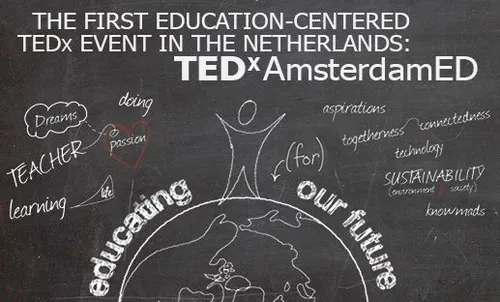 THE FIRST EDUCATION-CENTERED
TEDx EVENT IN THE NETHERLANDS:
TEDxAmsterdamED
Dreams
doing
passion
TEACHER
learning
life
aspirations
togetherness
connectedness
technology
SUSTAINABILITY
(environment society)
knowmads
(for)
educating
our future